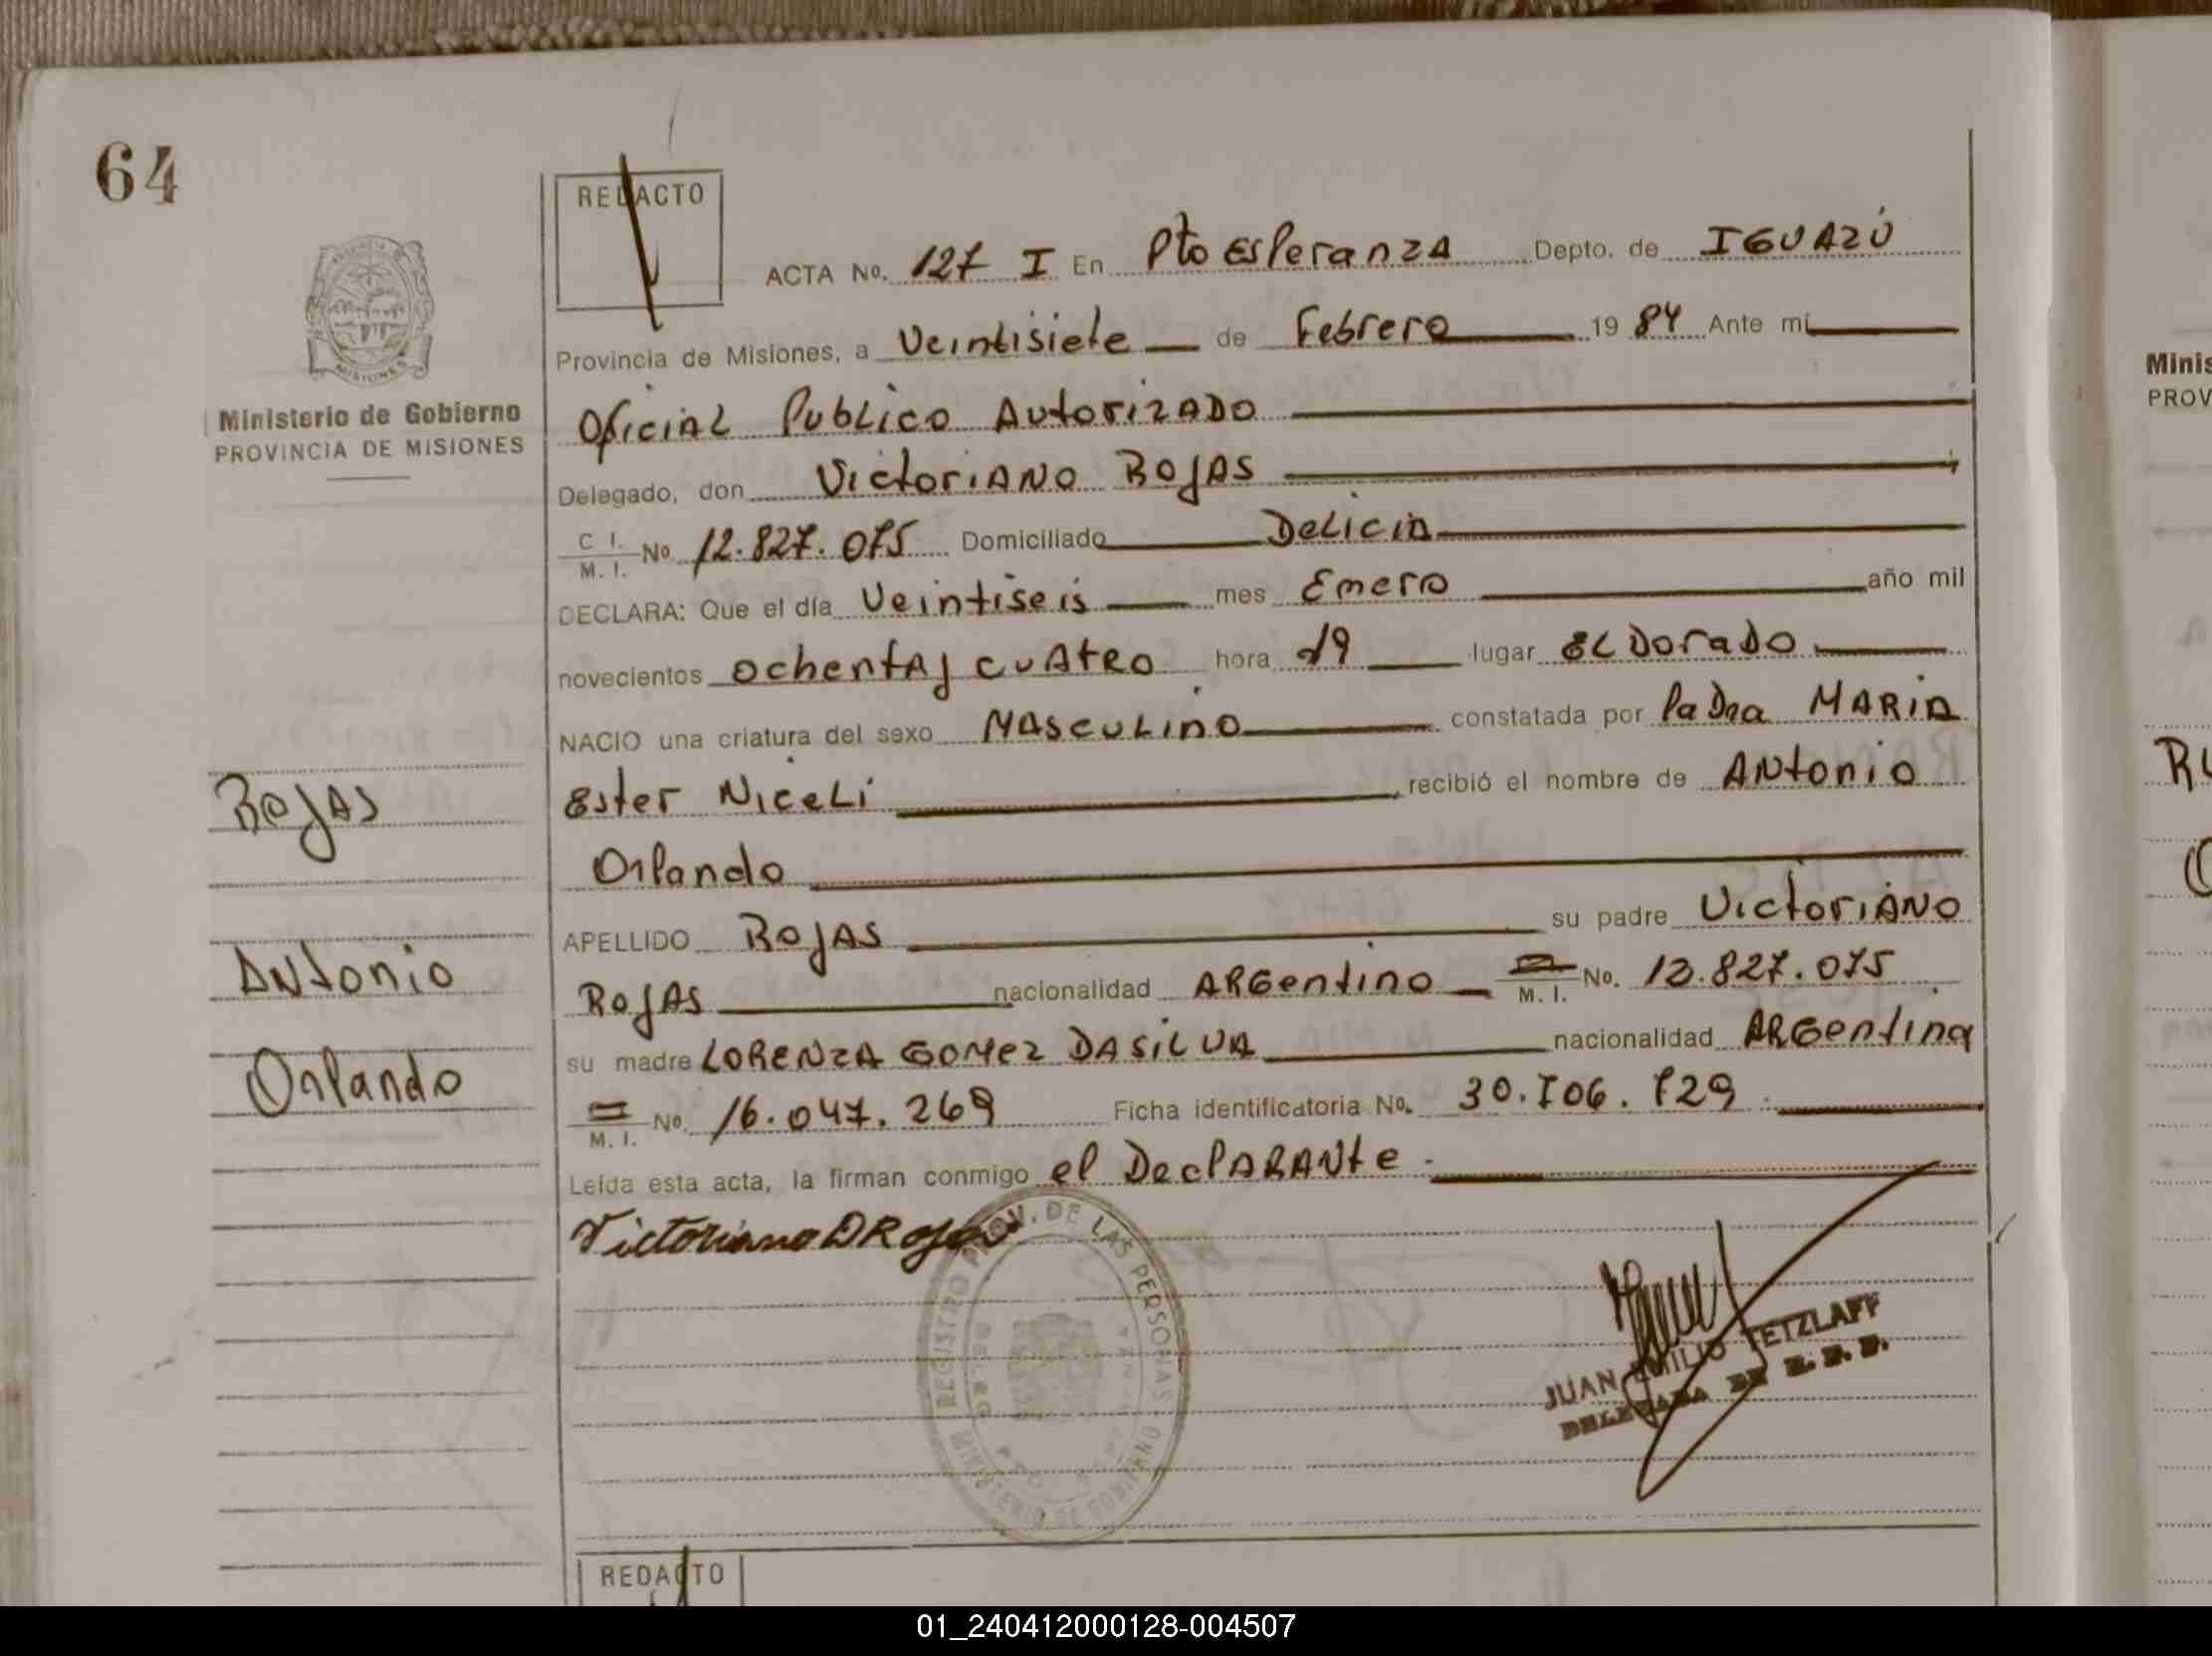 64
REDACTO
ACTA No. 127 I En Pto Esperanza Depto. de IGUAZÚ
Provincia de Misiones, a Veintisiete de Febrero 19 84 Ante mí
Oficial Publico Autorizado
Delegado, don Victoriano Rojas
C I. M. I. No. 12.827.075 Domiciliado Delicia
DECLARA: Que el día Veintiseis mes Enero año mil
novecientos ochenta y cuatro hora 19 lugar El Dorado
NACIO una criatura del sexo Masculino constatada por la Dra Maria
Ester Niceli recibió el nombre de Antonio
Orlando
APELLIDO Rojas su padre Victoriano
Rojas nacionalidad Argentino M. I. No. 12.827.075
su madre Lorenza Gomez Dasilva nacionalidad Argentina
M. I. No. 16.047.269 Ficha identificatoria No. 30.706.729
Leída esta acta, la firman conmigo el Declarante.
Victoriano D Rojas
REGISTRO PROV. DE LAS PERSONAS
MINISTERIO DE GOBIERNO
JUAN EMILIO TETZLAFF
REDACTO
PROVINCIA DE
MISIONES
Ministerio de Gobierno
PROVINCIA DE MISIONES
Rojas
Antonio
Orlando
Minis
PROV
01_240412000128-004507